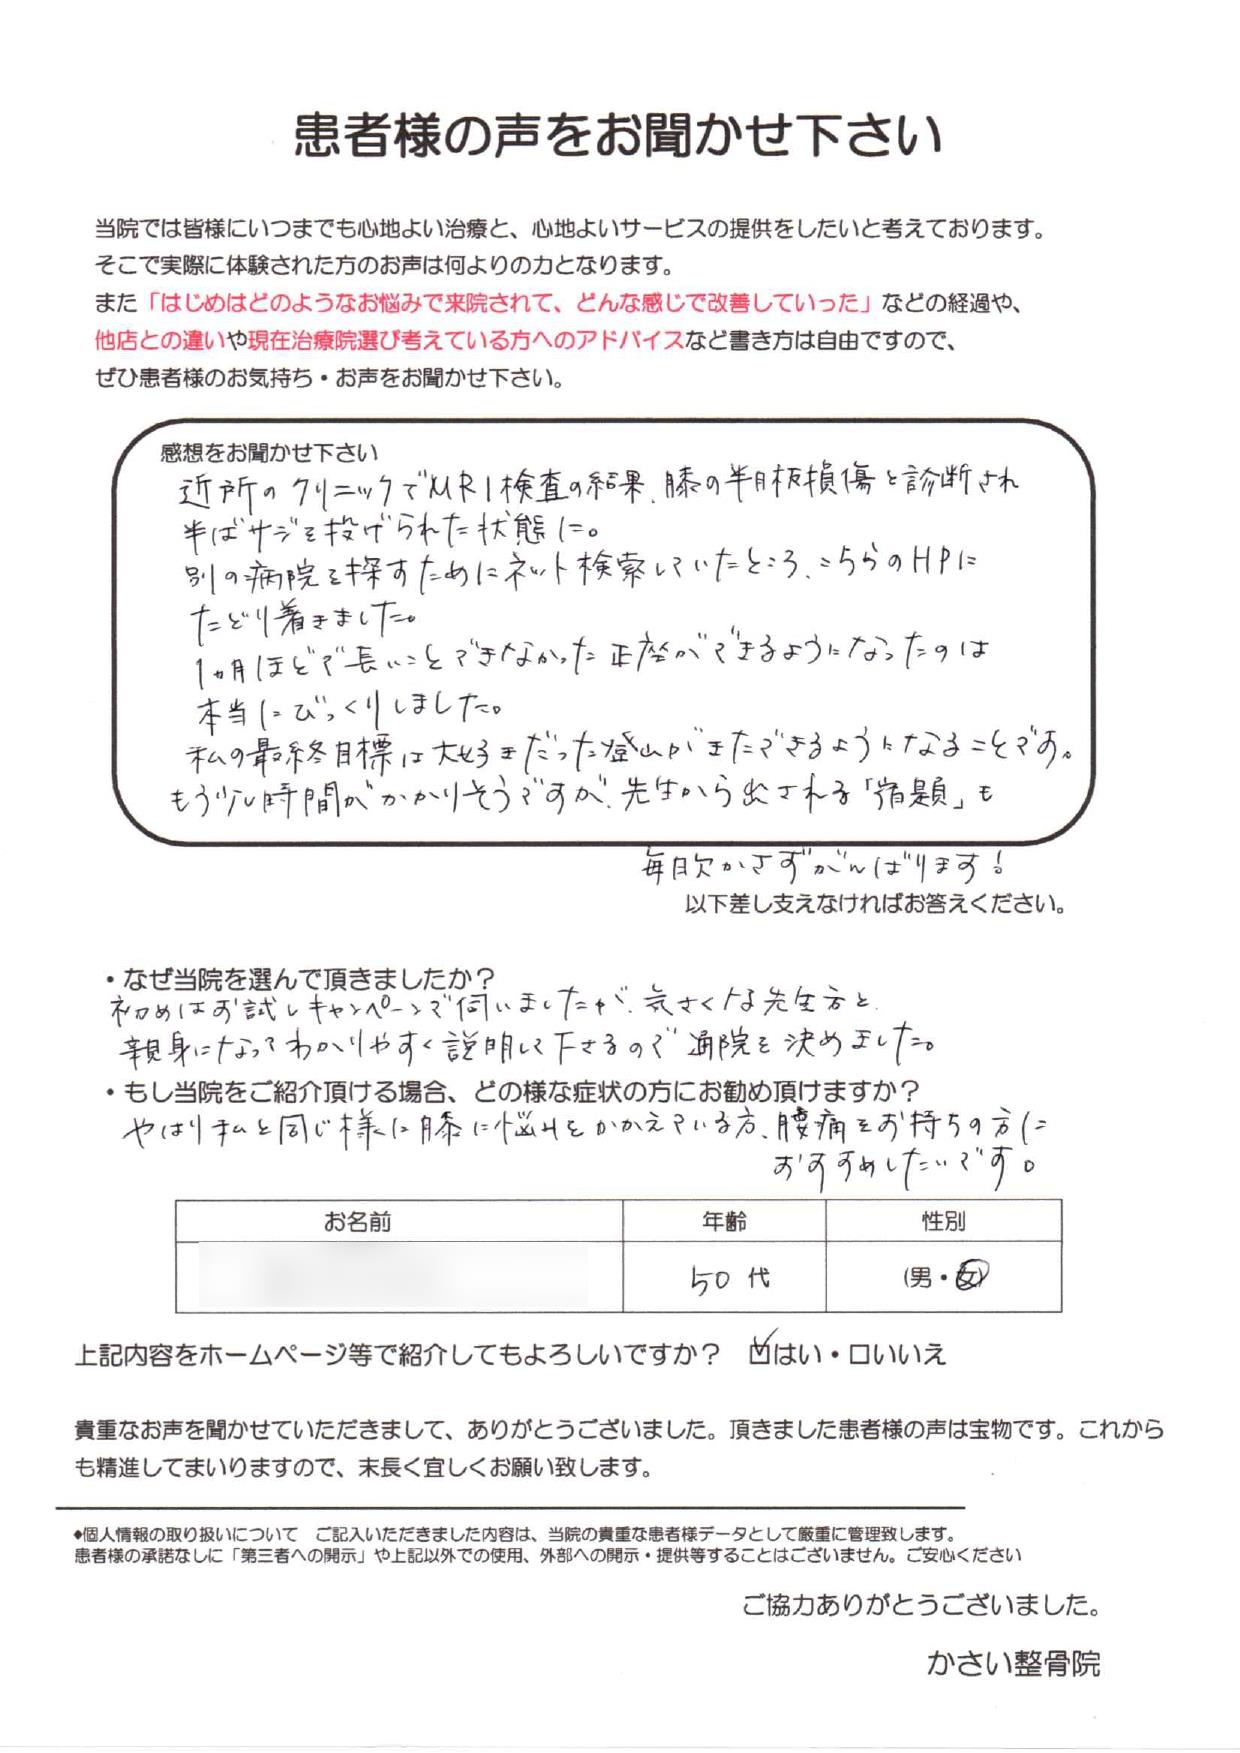 患者様の声をお聞かせ下さい
当院では皆様にいつまでも心地よい治療と、心地よいサービスの提供をしたいと考えております。
そこで実際に体験された方のお声は何よりの力となります。
また「はじめはどのようなお悩みで来院されて、どんな感じで改善していった」などの経過や、
他店との違いや現在治療院選び考えている方へのアドバイスなど書き方は自由ですので、
ぜひ患者様のお気持ち・お声をお聞かせ下さい。
感想をお聞かせ下さい
近所のクリニックでMRI検査の結果、膝の半月板損傷と診断され
半ばサジを投げられた状態に。
別の病院を探すためにネット検索していたところ、こちらのHPに
たどり着きました。
1ヵ月ほどで長いことできなかった正座ができるようになったのは
本当にびっくりしました。
私の最終目標は大好きだった登山がまたできるようになることです。
もう少し時間がかかりそうですが、先生から出される「宿題」も
毎日欠かさずがんばります!
以下差し支えなければお答えください。
・なぜ当院を選んで頂きましたか?
初めはお試しキャンペーンで伺いましたが、気さくな先生方と、
親身になってわかりやすく説明して下さるので通院を決めました。
・もし当院をご紹介頂ける場合、どの様な症状の方にお勧め頂けますか?
やはり私と同じ様に膝に悩みをかかえている方、腰痛をお持ちの方に
おすすめしたいです。
お名前 年齢 性別
50代 (男・女)
上記内容をホームページ等で紹介してもよろしいですか? ☑はい・□いいえ
貴重なお声を聞かせていただきまして、ありがとうございました。頂きました患者様の声は宝物です。これから
も精進してまいりますので、末長く宜しくお願い致します。
◆個人情報の取り扱いについて ご記入いただきました内容は、当院の貴重な患者様データとして厳重に管理致します。
患者様の承諾なしに「第三者への開示」や上記以外での使用、外部への開示・提供等することはございません。ご安心ください
ご協力ありがとうございました。
かさい整骨院